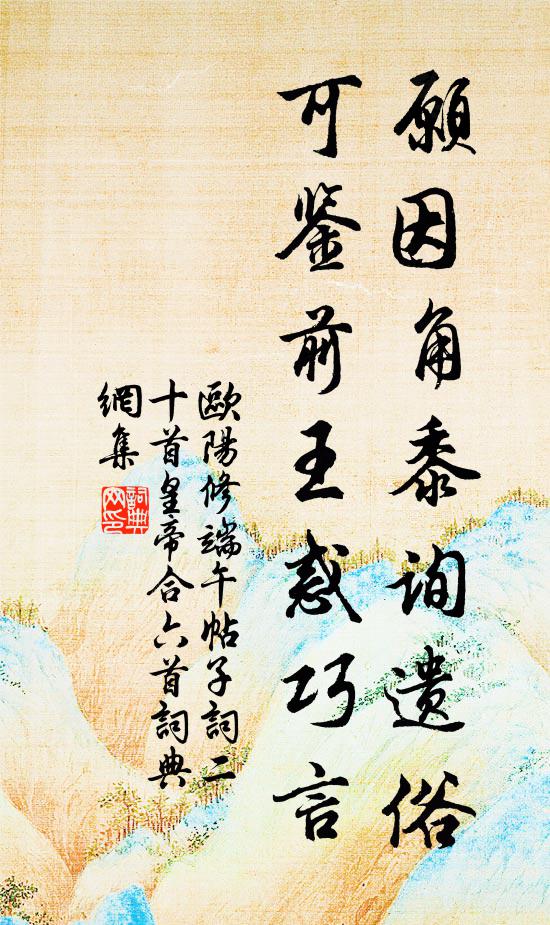 願因角黍询遗俗
可鉴前王惑巧言
歐陽修端午帖子詞二
十首皇帝合六首詞典
網集
詞典
网印